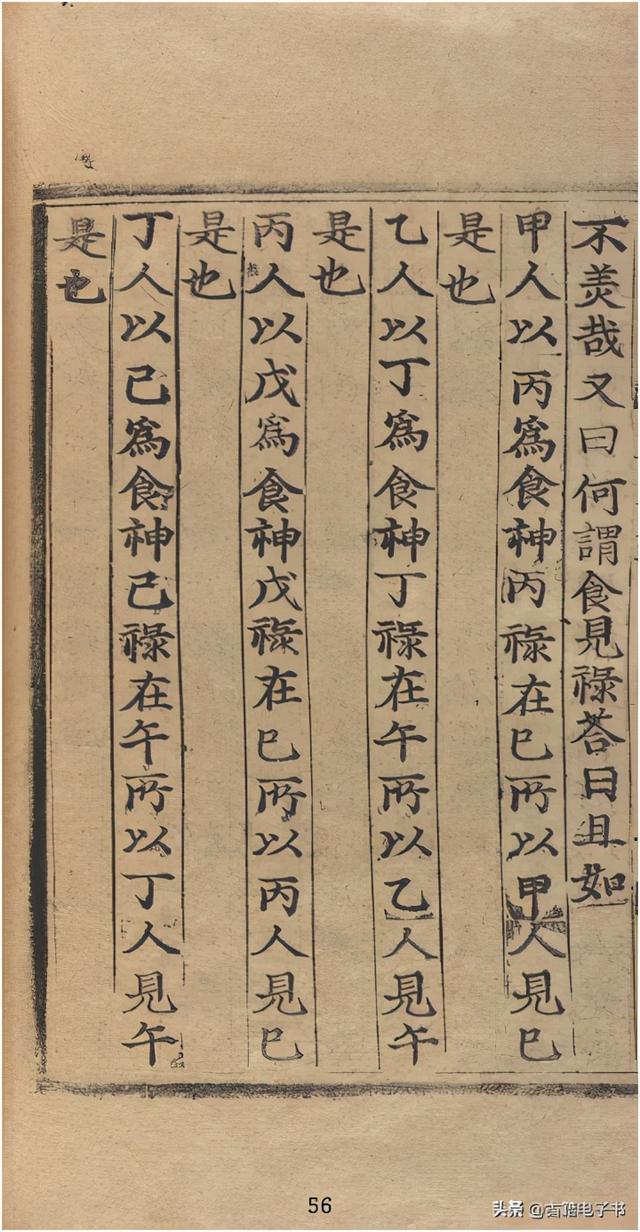 不羨哉又曰何謂食見祿荅曰且如
甲人以丙爲食神丙祿在巳所以甲人見巳
是也
乙人以丁爲食神丁祿在午所以乙人見午
是也
丙人以戊爲食神戊祿在巳所以丙人見巳
是也
丁人以己爲食神己祿在午所以丁人見午
是也
56
头条 @古籍电子书